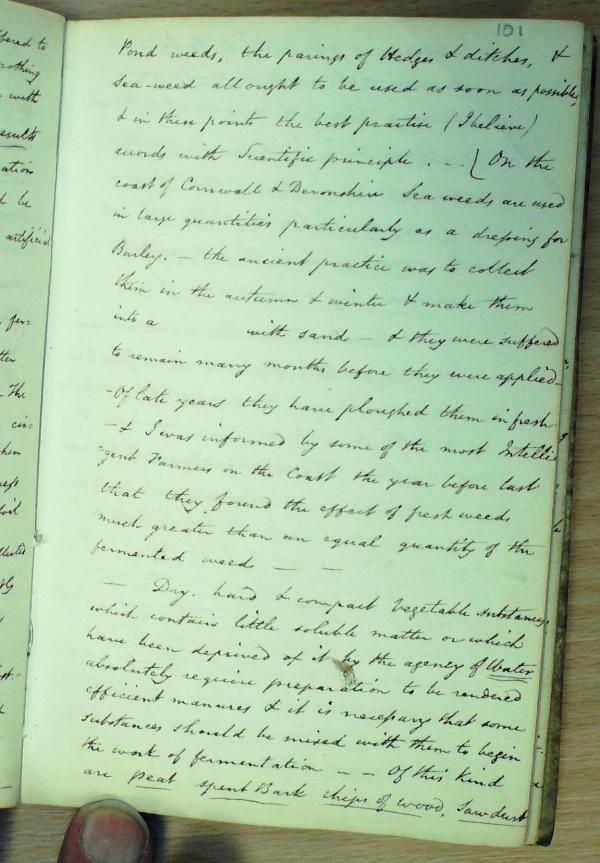 101
Pond weeds, the parings of Hedges & ditches, &
Sea-weed all ought to be used as soon as possible,
& in these points the best practise (I believe)
accords with Scientific principle . - - ( On the
coast of Cornwall & Devonshire Sea weeds are used
in large quantities particularly as a dressing for
Barley. - the ancient practice was to collect
them in the autumn & winter & make them
into a with sand - & they were suffered
to remain many months before they were applied -
- Of late years they have ploughed them in fresh
- & I was informed by some of the most Intelli
=gent Farmers on the Coast the year before last
that they found the effect of fresh weeds
much greater than an equal quantity of the
fermented weed — —
— Dry, hard & compact Vegetable substances,
which contain little soluble matter or which
have been deprived of it by the agency of Water
absolutely require preparation to be rendered
efficient manures & it is necessary that some
substances should be mixed with them to begin
the work of fermentation - - Of this Kind
are peat spent Bark chips of wood, Sawdust